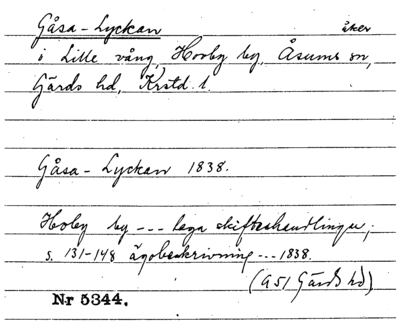 Gåsa-Lyckan åker
i Lille vång, Hovby by, Åsums sn,
Gärds hd, Krstd. l.
Gåsa-Lyckan 1838.
Hovby by --- laga skifteshandlingar,
s. 131-148 ägobeskrivning --- 1838.
(G 51 Gärds hd)
Nr 5344.